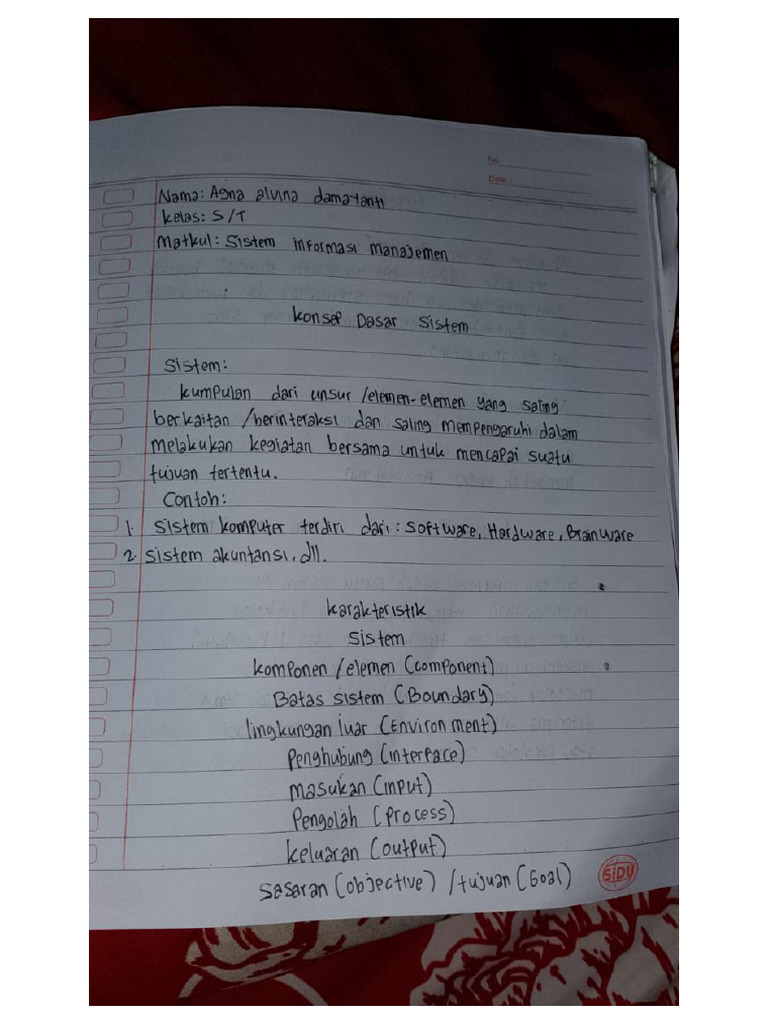 No.
Date:
Nama: Agna alvina damayanti
Kelas: S/T
Matkul: Sistem informasi manajemen
Konsep Dasar Sistem
Sistem:
kumpulan dari unsur /elemen-elemen yang saling
berkaitan /berinteraksi dan saling mempengaruhi dalam
melakukan kegiatan bersama untuk mencapai suatu
tujuan tertentu.
Contoh:
1. Sistem komputer terdiri dari: Software, Hardware, Brainware
2. sistem akuntansi, dll.
karakteristik
sistem
komponen /elemen (component)
Batas sistem (Boundary)
lingkungan luar (Environment)
Penghubung (interface)
masukan (input)
Pengolah (process)
keluaran (output)
Sasaran (objective) /tujuan (Goal)
SIDU